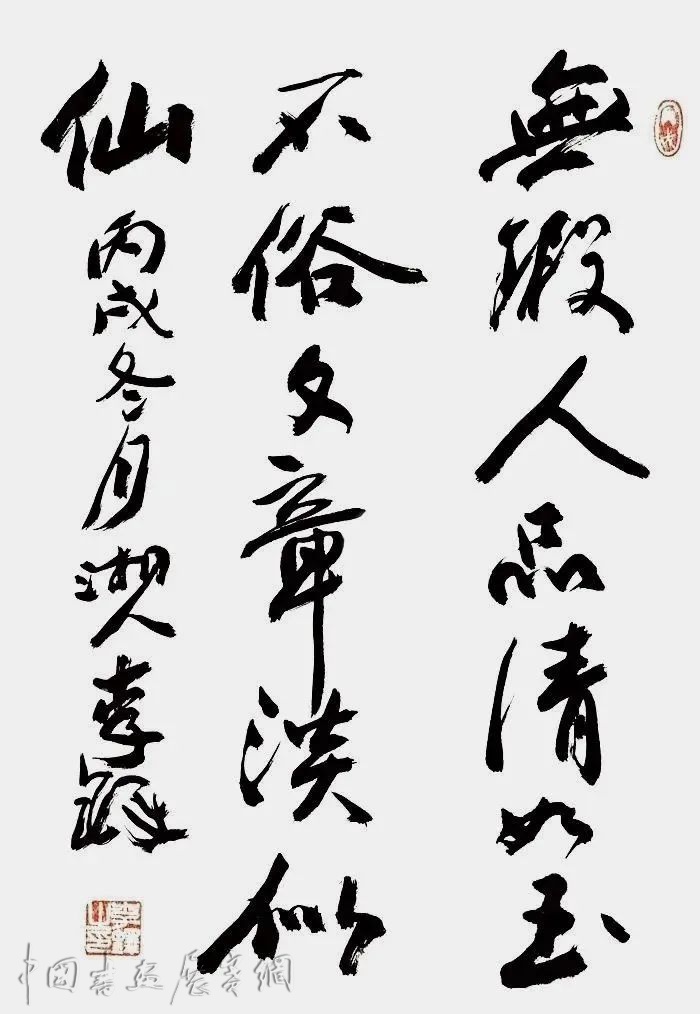 無瑕人品清如玉
不俗文章淡似
仙 丙戌冬月湘人李鐸
中國書画展賽網